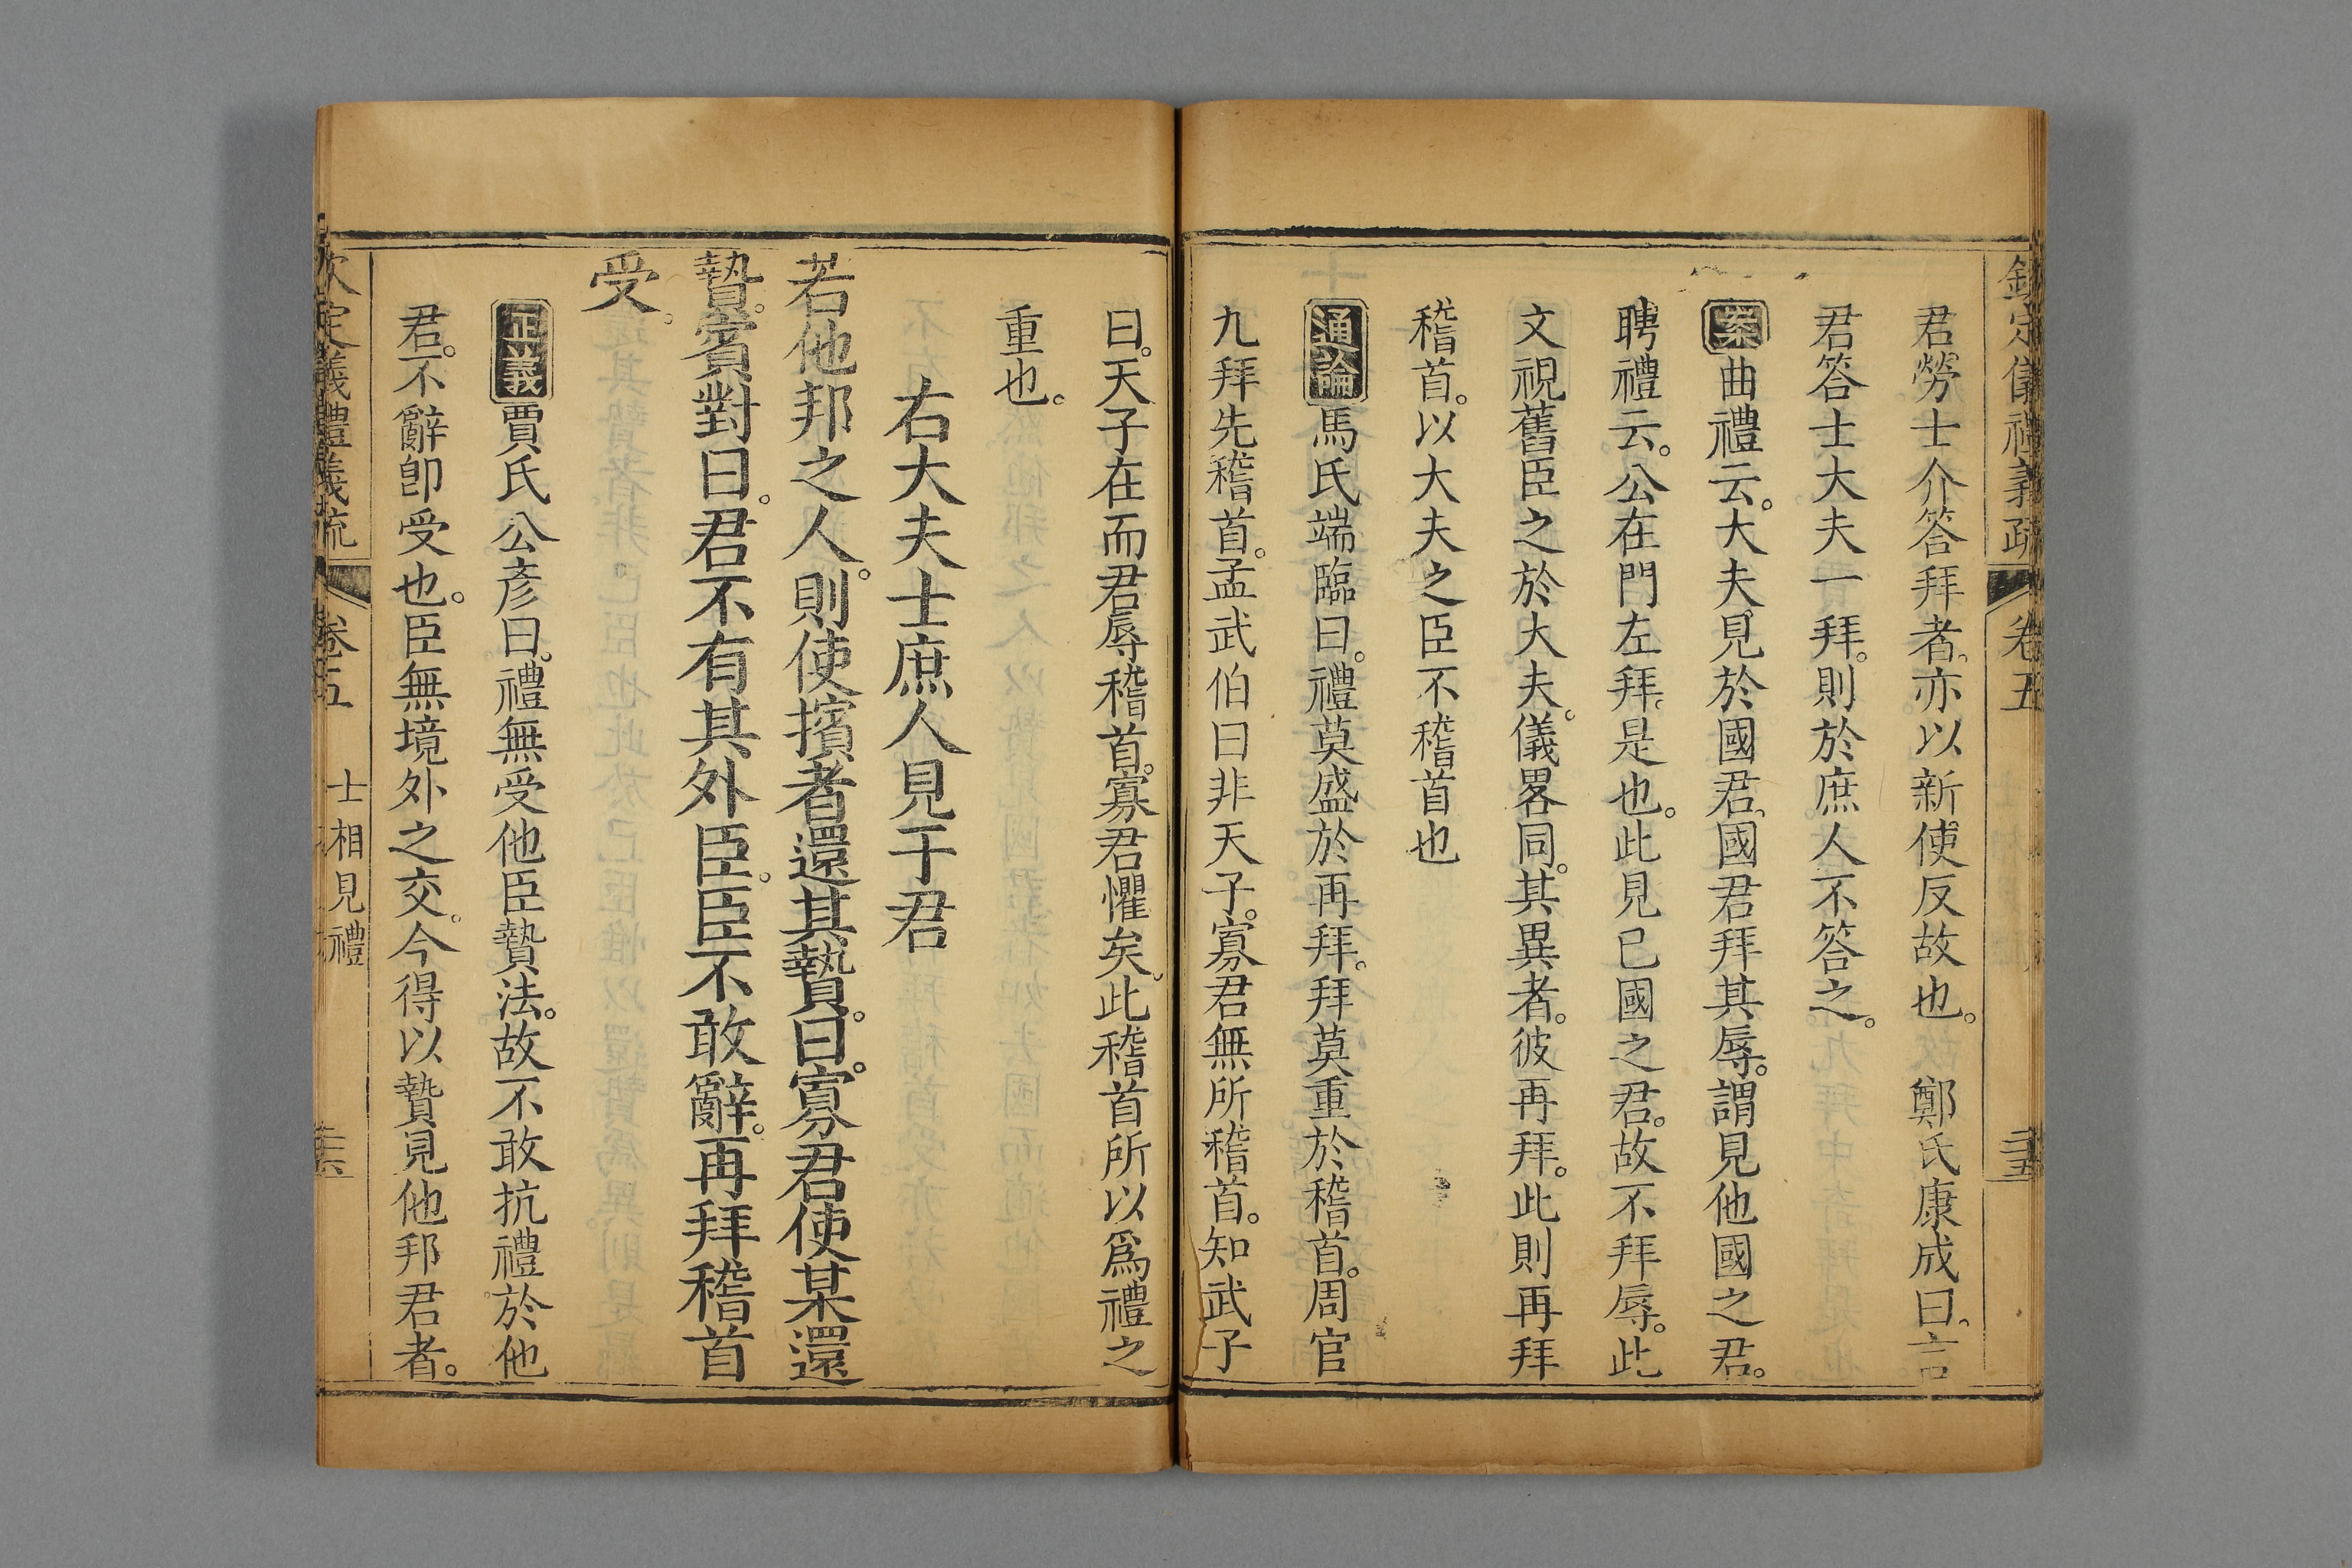 欽定儀禮義疏 卷五
君勞士介答拜者亦以新使反故也。鄭氏康成曰言
君答士大夫一拜則於庶人不答之。
案曲禮云。大夫見於國君國君拜其辱。謂見他國之君。
聘禮云。公在門左拜。是也。此見已國之君。故不拜辱。此
文視舊臣之於大夫。儀畧同。其異者。彼再拜。此則再拜
稽首。以大夫之臣不稽首也
通論馬氏端臨曰。禮莫盛於再拜。拜莫重於稽首。周官
九拜先稽首。孟武伯曰非天子。寡君無所稽首。知武子
曰。天子在而君辱稽首。寡君懼矣。此稽首所以爲禮之
重也。
右大夫士庶人見于君
若他邦之人。則使擯者還其贄。曰。寡君使某還
贄。賓對曰。君不有其外臣。臣不敢辭。再拜稽首
受。
正義賈氏公彥曰。禮無受他臣贄法。故不敢抗禮於他
君。不辭卽受也。臣無境外之交。今得以贄見他邦君者。
欽定儀禮義疏 卷五 士相見禮